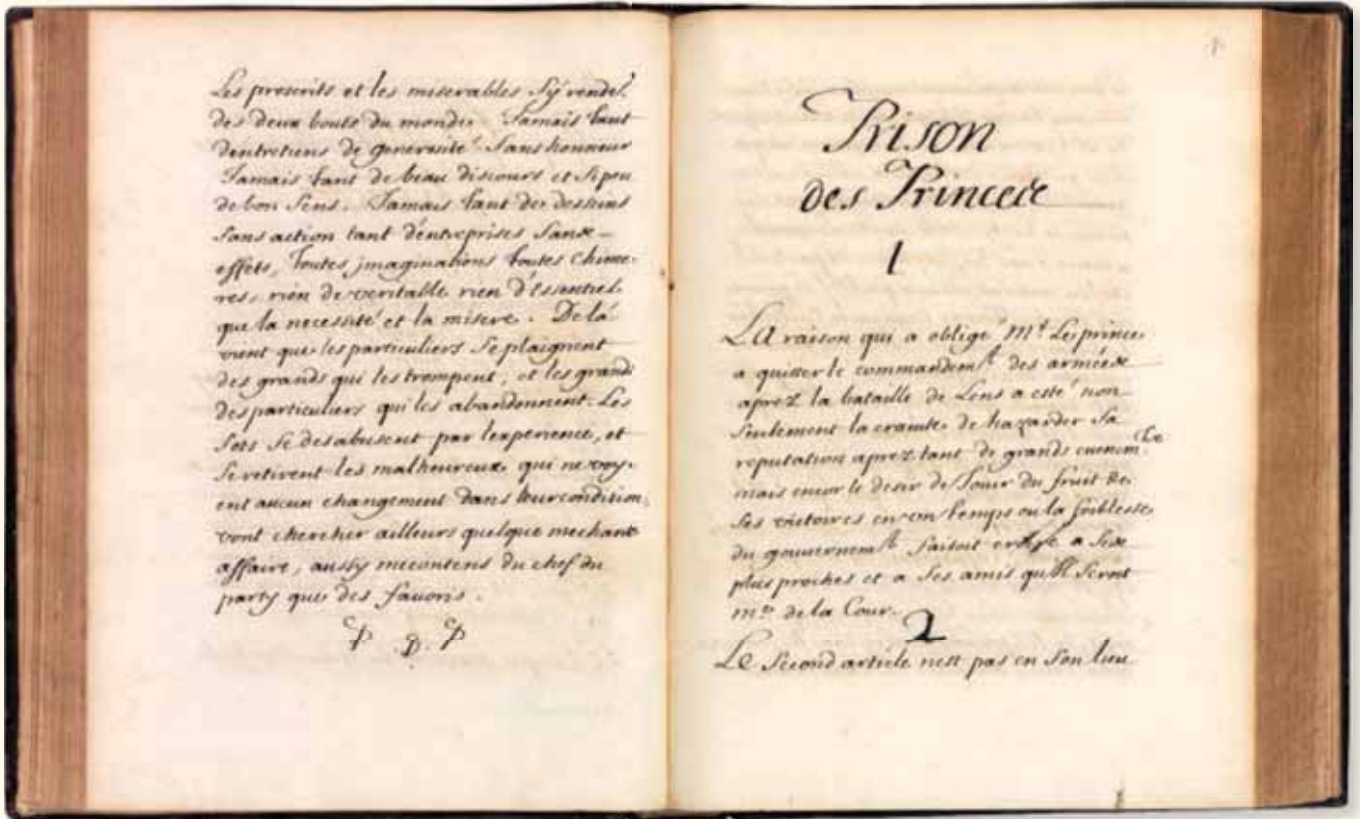 Les proscrits et les miserables s'y rendet.
des deux bouts du monde. Jamais tant
dentretiens de generosité sans honneur
Jamais tant de beau discours et si peu
de bon sens. Jamais tant de desseins
sans action tant d'entreprises sans
effets, toutes jmaginations toutes chime-
res, rien de veritable rien d'essentiel
que la necessité et la misere. De là
vient que les particuliers se plaignent
des grands qui les trompent, et les grands
des particuliers qui les abandonnent. Les
sots se desabusent par lexperience, et
se retirent les malheureux qui ne voy-
ent aucun changement dans leur condition,
vont chercher ailleurs quelque mechante
affaire, aussy mecontens du chef du
party que des favoris.
Prison
des Princes
1
La raison qui a obligé Mr. Le prince
a quitter le commandemt. des armées
aprez la bataille de Lens a esté non
seulement la crainte de hazarder sa
reputation aprez tant de grands
mais encor le desir de Jouir du fruit de
ses victoires en un temps ou la foiblesse
du gouvernemt. faisoit a ses
plus proches et a ses amis qu'il seroit
me. de la Cour.
2
Le second article nest pas en son lieu